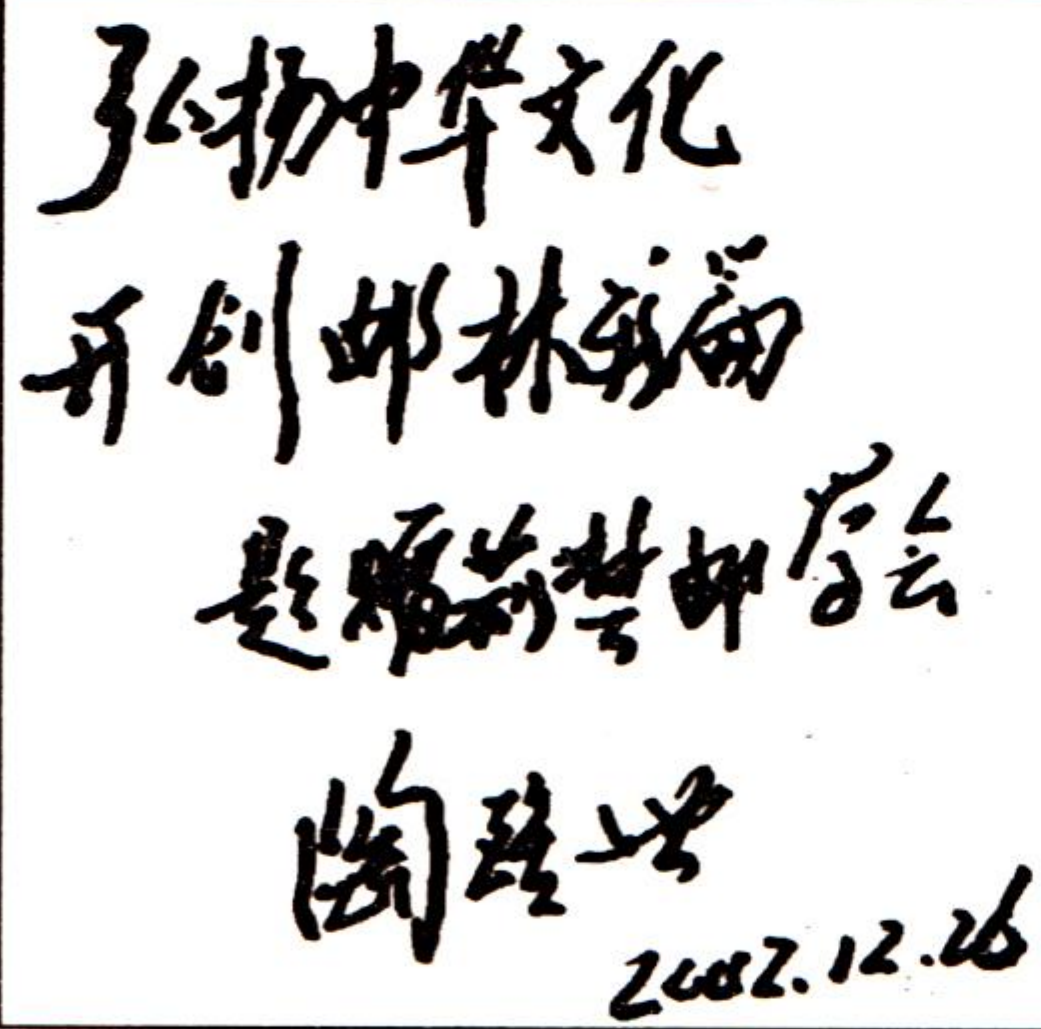 弘扬中华文化
开创邮林新篇
题赐荆楚邮学会
陶
2002.12.26